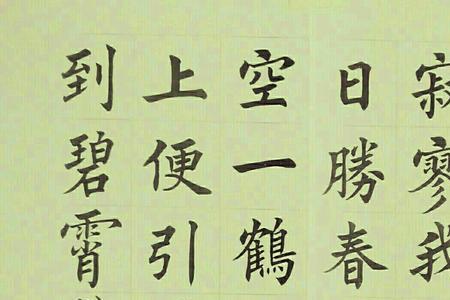 寂寥我
日勝春
空一鶴
上便引
到碧霄